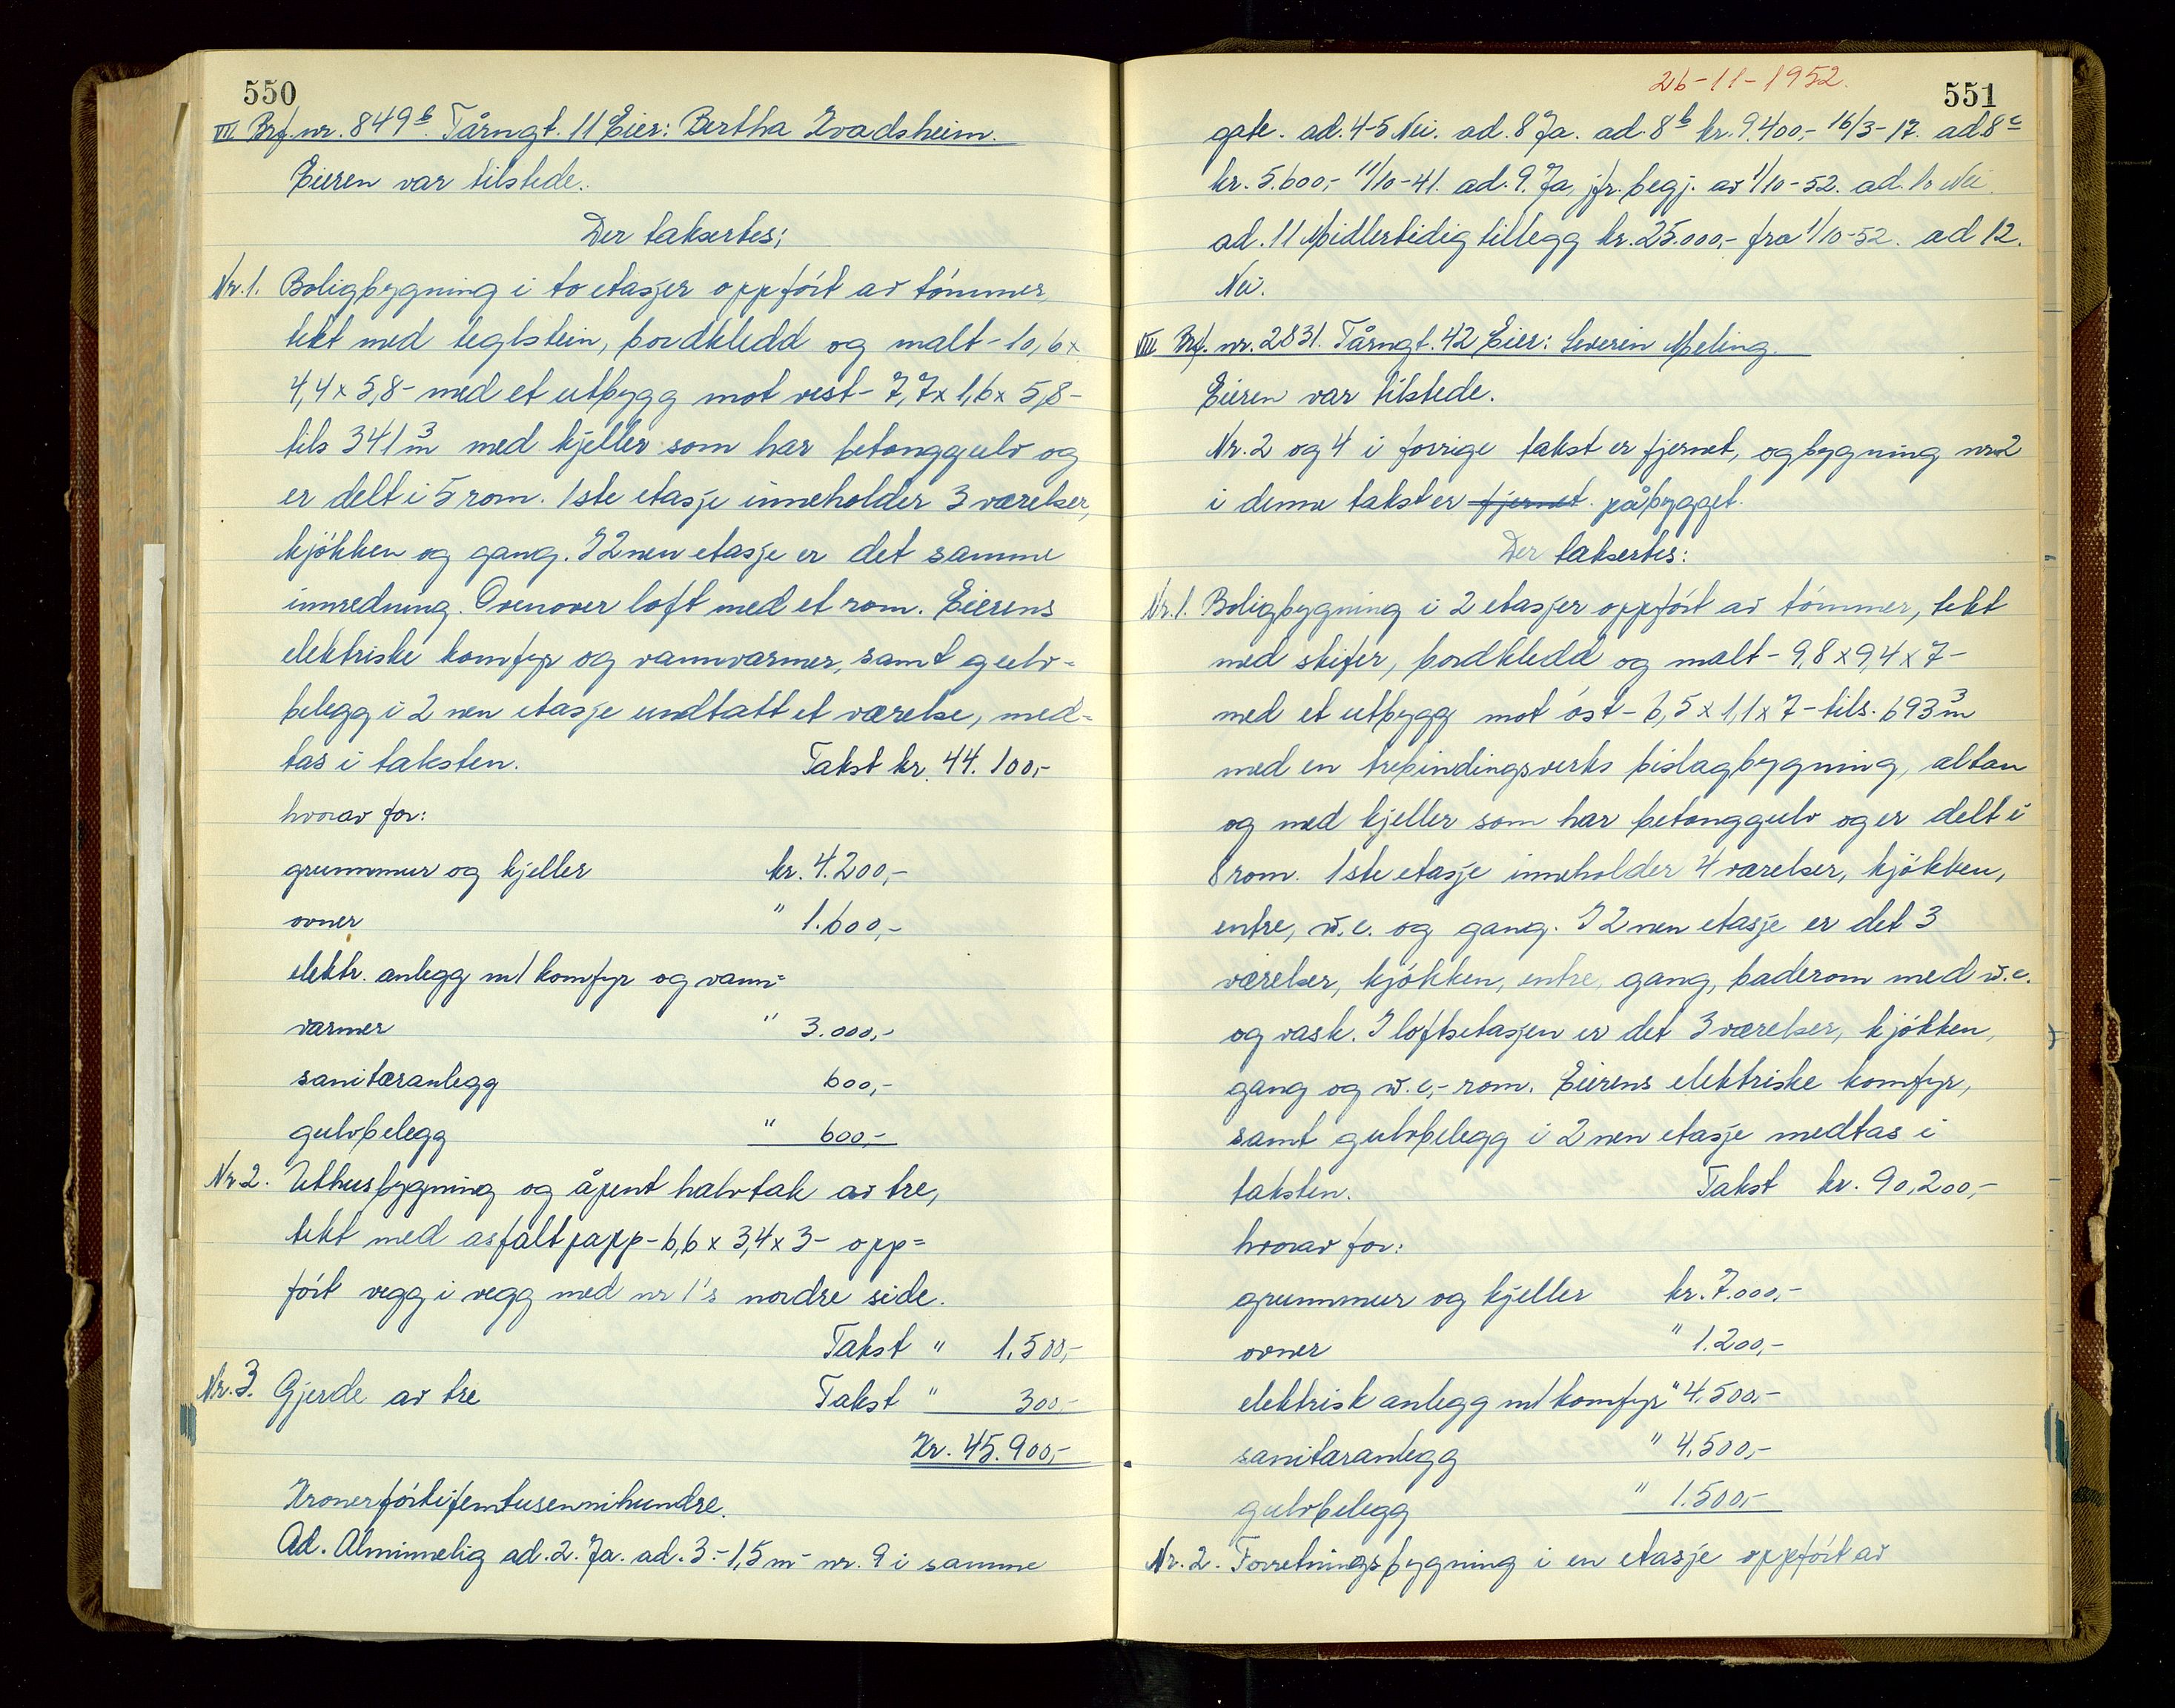 550
VII. Brf. nr. 849 b. Tårngt. 11 Eier: Bertha Kvadsheim.
Eieren var tilstede.
Der taksertes;
Nr. 1. Boligbygning i to etasjer oppfört av tömmer,
tekt med teglstein, bordkledd og malt - 10,6 x
4,4 x 5,8 - med et utbygg mot vest - 7,7 x 1,6 x 5,8 -
tils 341 m3 med kjeller som har betonggulv og
er delt i 5 rom. 1ste etasje inneholder 3 værelser,
kjökken og gang. I 2nen etasje er det samme
innredning. Ovenover loft med et rom. Eierens
elektriske komfyr og vannvarmer, samt gulv=
belegg i 2 nen etasje undtatt et værelse, med=
tas i taksten. Takst kr. 44.100,-
hvorav for:
grunnmur og kjeller kr. 4.200,-
ovner " 1.600,-
elektr. anlegg m/ komfyr og vann=
varmer " 3.000,-
sanitæranlegg 600,-
gulvbelegg " 600,-
Nr. 2. Uthusbygning og åpent halvtak av tre,
tekt med asfaltpapp - 6,6 x 3,4 x 3 - opp=
fört vegg i vegg med nr 1's nordre side.
Takst " 1.500,-
Nr. 3. Gjerde av tre Takst " 300,-
Kr. 45.900,-
Kronerförtifemtusennihundre.
Ad. Alminnelig ad. 2. Ja. ad. 3. - 1,5 m - nr. 9 i samme
26-11-1952.
551
gate. ad. 4-5 Nei. ad. 8 Ja. ad. 8 b kr. 9.400,- 16/3-17. ad 8 c
kr. 5.600,- 11/10-41. ad. 9. Ja, jfr. begj. av 1/10-52. ad. 10 Nei.
ad. 11 Midlertidig tillegg kr. 25.000,- fra 1/10-52. ad 12.
Nei.
VIII Brf. nr. 2831. Tårngt. 42 Eier: Severin Meling.
Eieren var tilstede.
Nr. 2 og 4 i forrige takst er fjernet, og bygning nr 2
i denne takst er fjernet. påbygget.
Der taksertes:
Nr. 1. Boligbygning i 2 etasjer oppfört av tömmer, tekt
med skifer, bordkledd og malt - 9,8 x 9,4 x 7 -
med et utbygg mot öst - 6,5 x 1,1 x 7 - tils. 693 m3
med en trebindingsverks bislagbygning, altan
og med kjeller som har betonggulv og er delt i
8 rom. 1ste etasje inneholder 4 værelser, kjökken,
entre, w.c. og gang. I 2 nen etasje er det 3
værelser, kjökken, entre, gang, baderom med w.c.
og vask. I loftsetasjen er det 3 værelser, kjökken,
gang og w.c.- rom. Eierens elektriske komfyr,
samt gulvbelegg i 2 nen etasje medtas i
taksten. Takst kr. 90,200,-
hvorav for:
grunnmur og kjeller kr. 7.000,-
ovner " 1.200,-
elektrisk anlegg m/ komfyr " 4.500,-
sanitæranlegg " 4.500,-
gulvbelegg " 1.500,-
Nr. 2. Forretningsbygning i en etasje oppfört av